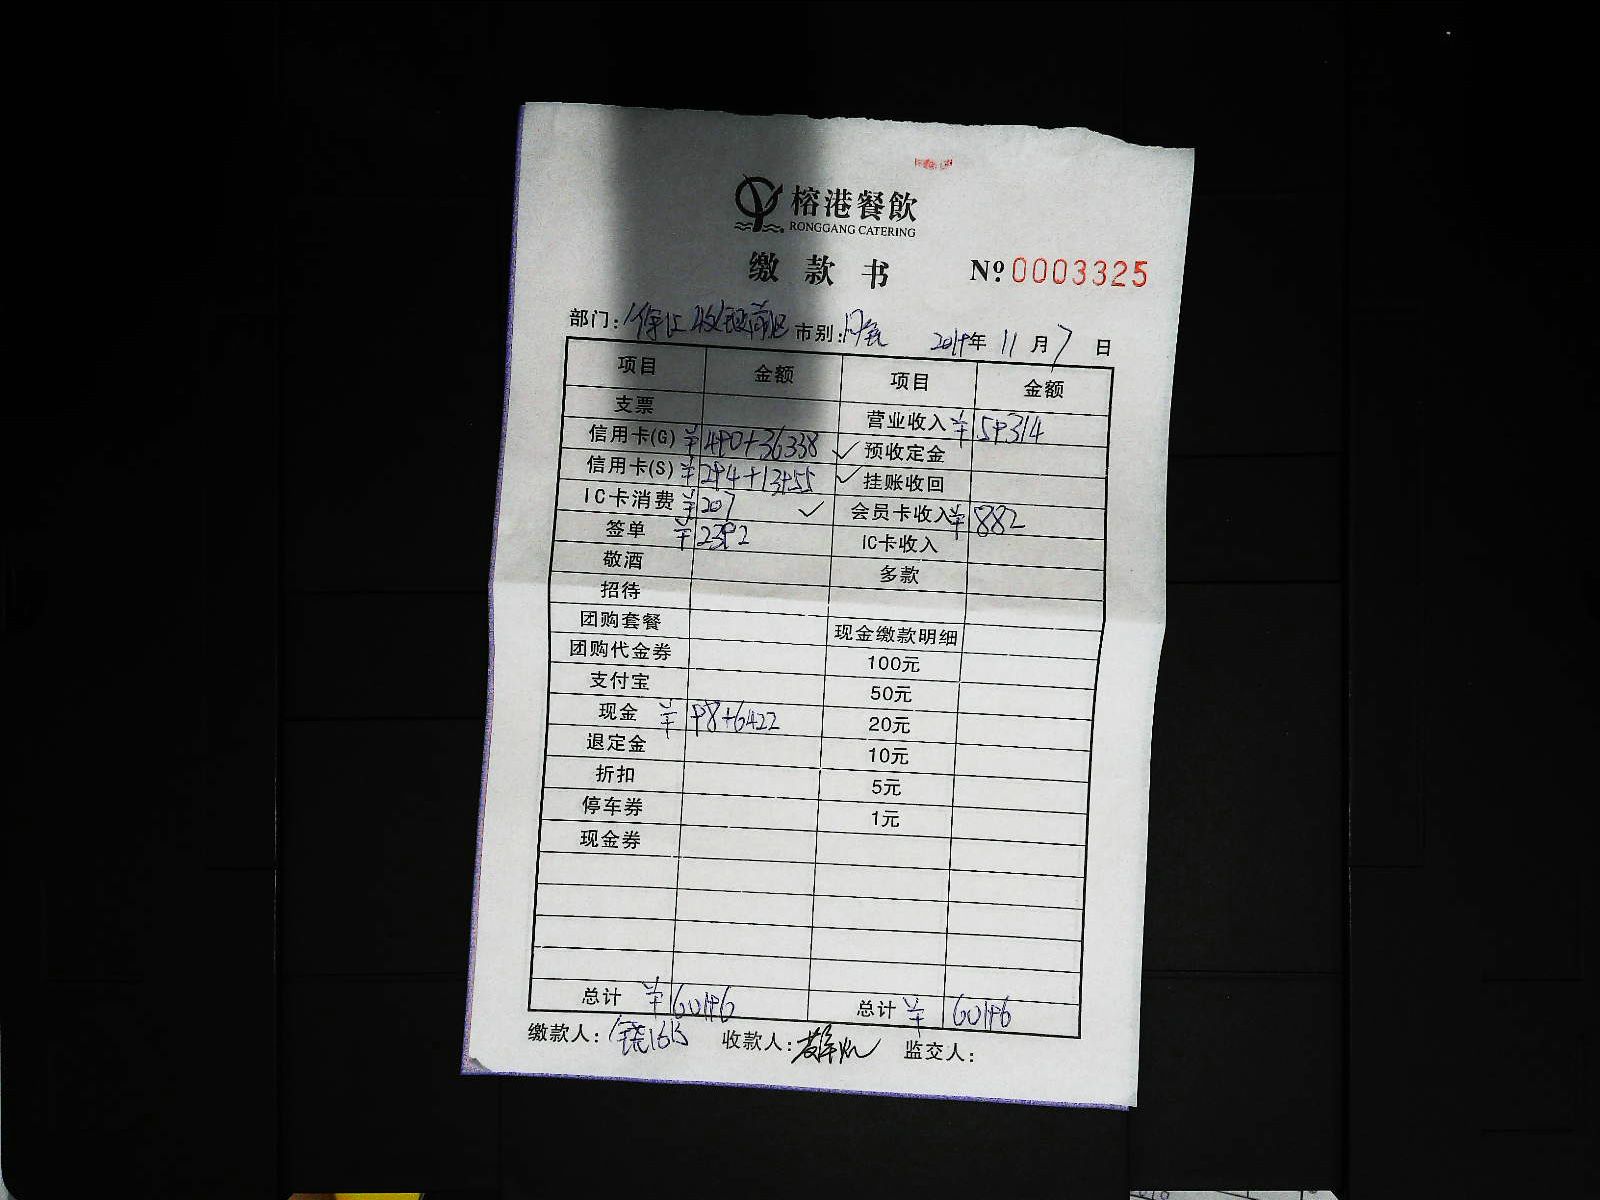 榕港餐飲
RONGGANG CATERING
缴款书 Nº 0003325
部门: 市别: 2019年 11月 7日
项目 金额 项目 金额
支票 营业收入 ¥ 59314
信用卡(G) ¥ 490+36338 ✓ 预收定金
信用卡(S) ¥ 294+13955 ✓ 挂账收回
IC卡消费 ¥ 207 ✓ 会员卡收入 ¥ 882
签单 ¥ 2392 IC卡收入
敬酒 多款
招待
团购套餐 现金缴款明细
团购代金券 100元
支付宝 50元
现金 ¥ 98+6422 20元
退定金 10元
折扣 5元
停车券 1元
现金券
总计 ¥ 60196 总计 ¥ 60196
缴款人: 收款人: 监交人: